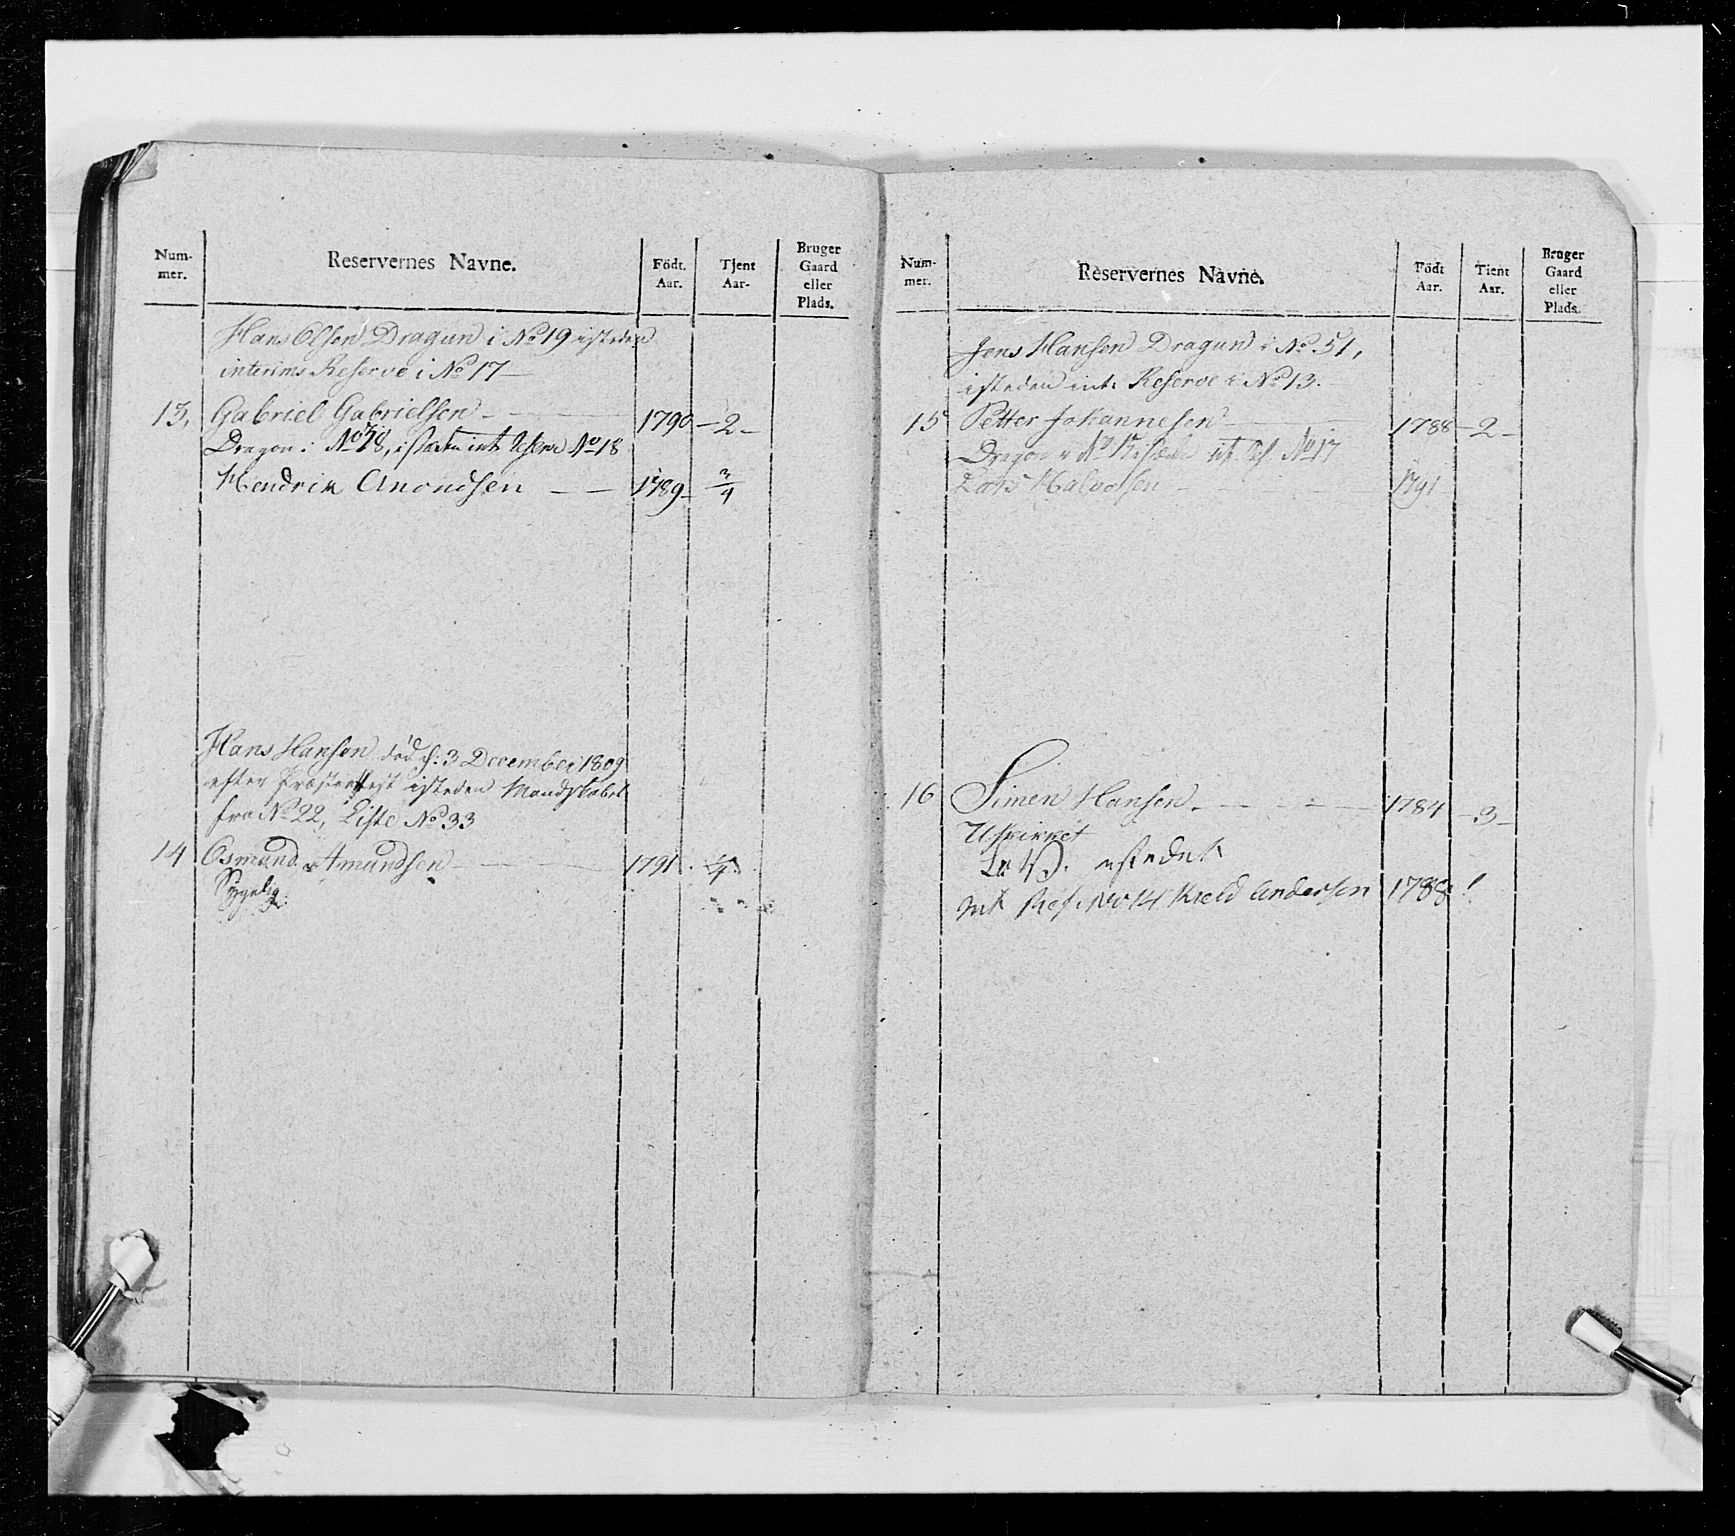 Num-
mer.
Reservernes Navne.
Födt.
Aar.
Tjent
Aar-
Bruger
Gaard
eller
Plads.
Hans Olsen Dragun i No 19 isteden
interims Reserve i No 17
13. Gabriel Gabrielsen 1790 2
Dragon i No 18, istæden int No 18
Hendrik Anondsen 1789 3/4
Hans Hansen død d: 3 December 1809
efter Præsteattest isteden Mandskabet
fra No 22, Liste No 33
14 Osmund Amundsen 1791
Sygelig
Num-
mer.
Reservernes Navne.
Födt
Aar.
Tient
Aar.
Bruger
Gaard
eller
Plads.
Jens Hansen Dragun i No 51,
isteden int: Reserve i No 13.
15 Petter Johannesen 1788 2
Dragon No No 17
Lars Halvorsen 1791
16 Simen Hansen 1784 3
Uskikket
istedet
int Res. No 14 Kield Andersen 1788